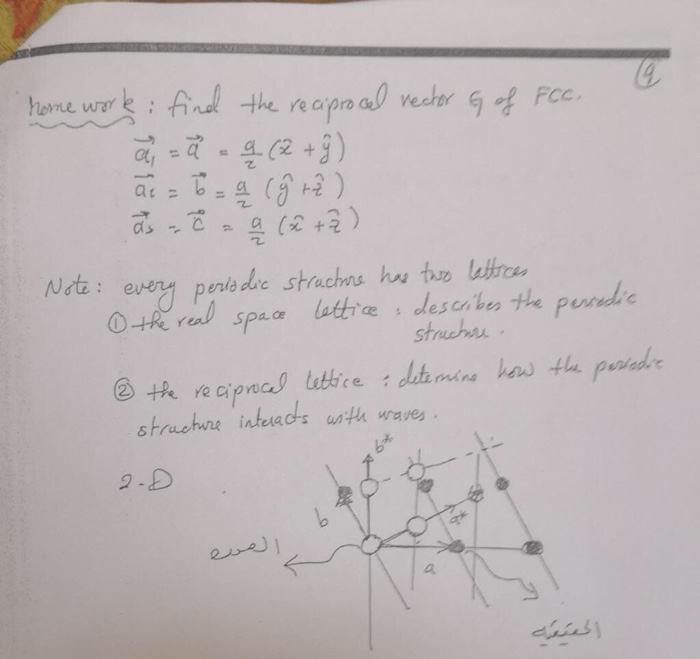 9
Home work : find the reciprocal vector G of FCC.
a₁ = a = a/2 (x̂ + ŷ)
a₂ = b = a/2 (ŷ + ẑ)
a₃ = c = a/2 (x̂ + ẑ)
Note: every periodic structure has two lattices
① the real space lettice : describes the peroedic
structure.
② the reciprocal lettice : detemine how the peroedic
structure interacts with waves.
2-D
b*
b
a*
a
الحقيقية